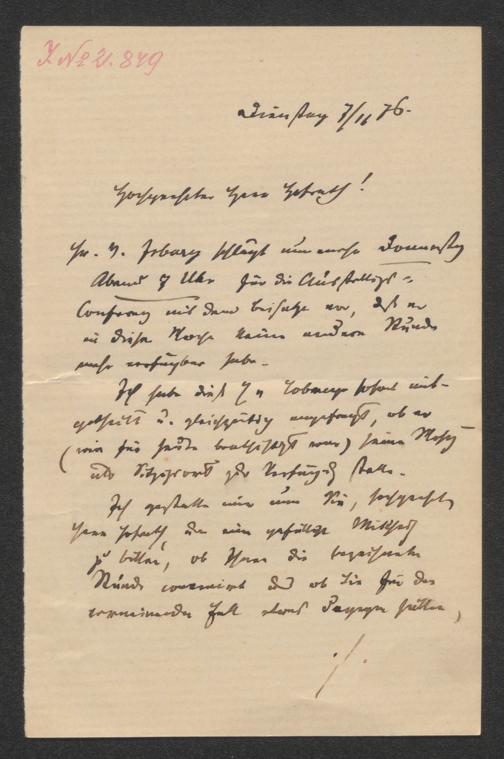 J. No 2. 849
Dienstag 7/11 76.
Hochgeehrter Herr Hofrath!
Hr. v. schlägt nun mehr Donnerstag
Abend 7 Uhr für die Ausstellungs=
Conferenz mit dem Beisatze vor, daß er
in dieser Woche keine andere Stunde
mehr verfügbar habe.
Ich habe dieß H. v. sofort mit-
getheilt u. gleichzeitig angefragt, ob er
(wie für heute beabsichtigt war) seine
als Sitzungsort zur Verfügung stelle.
Ich gestatte mir nun Sie, hochgeehrter
Herr Hofrath um eine gefällige
zu bitten, ob Ihnen die bezeichnete
Stunde convenirt und ob Sie für den
verneinenden Fall etwas dagegen hätten,
./.